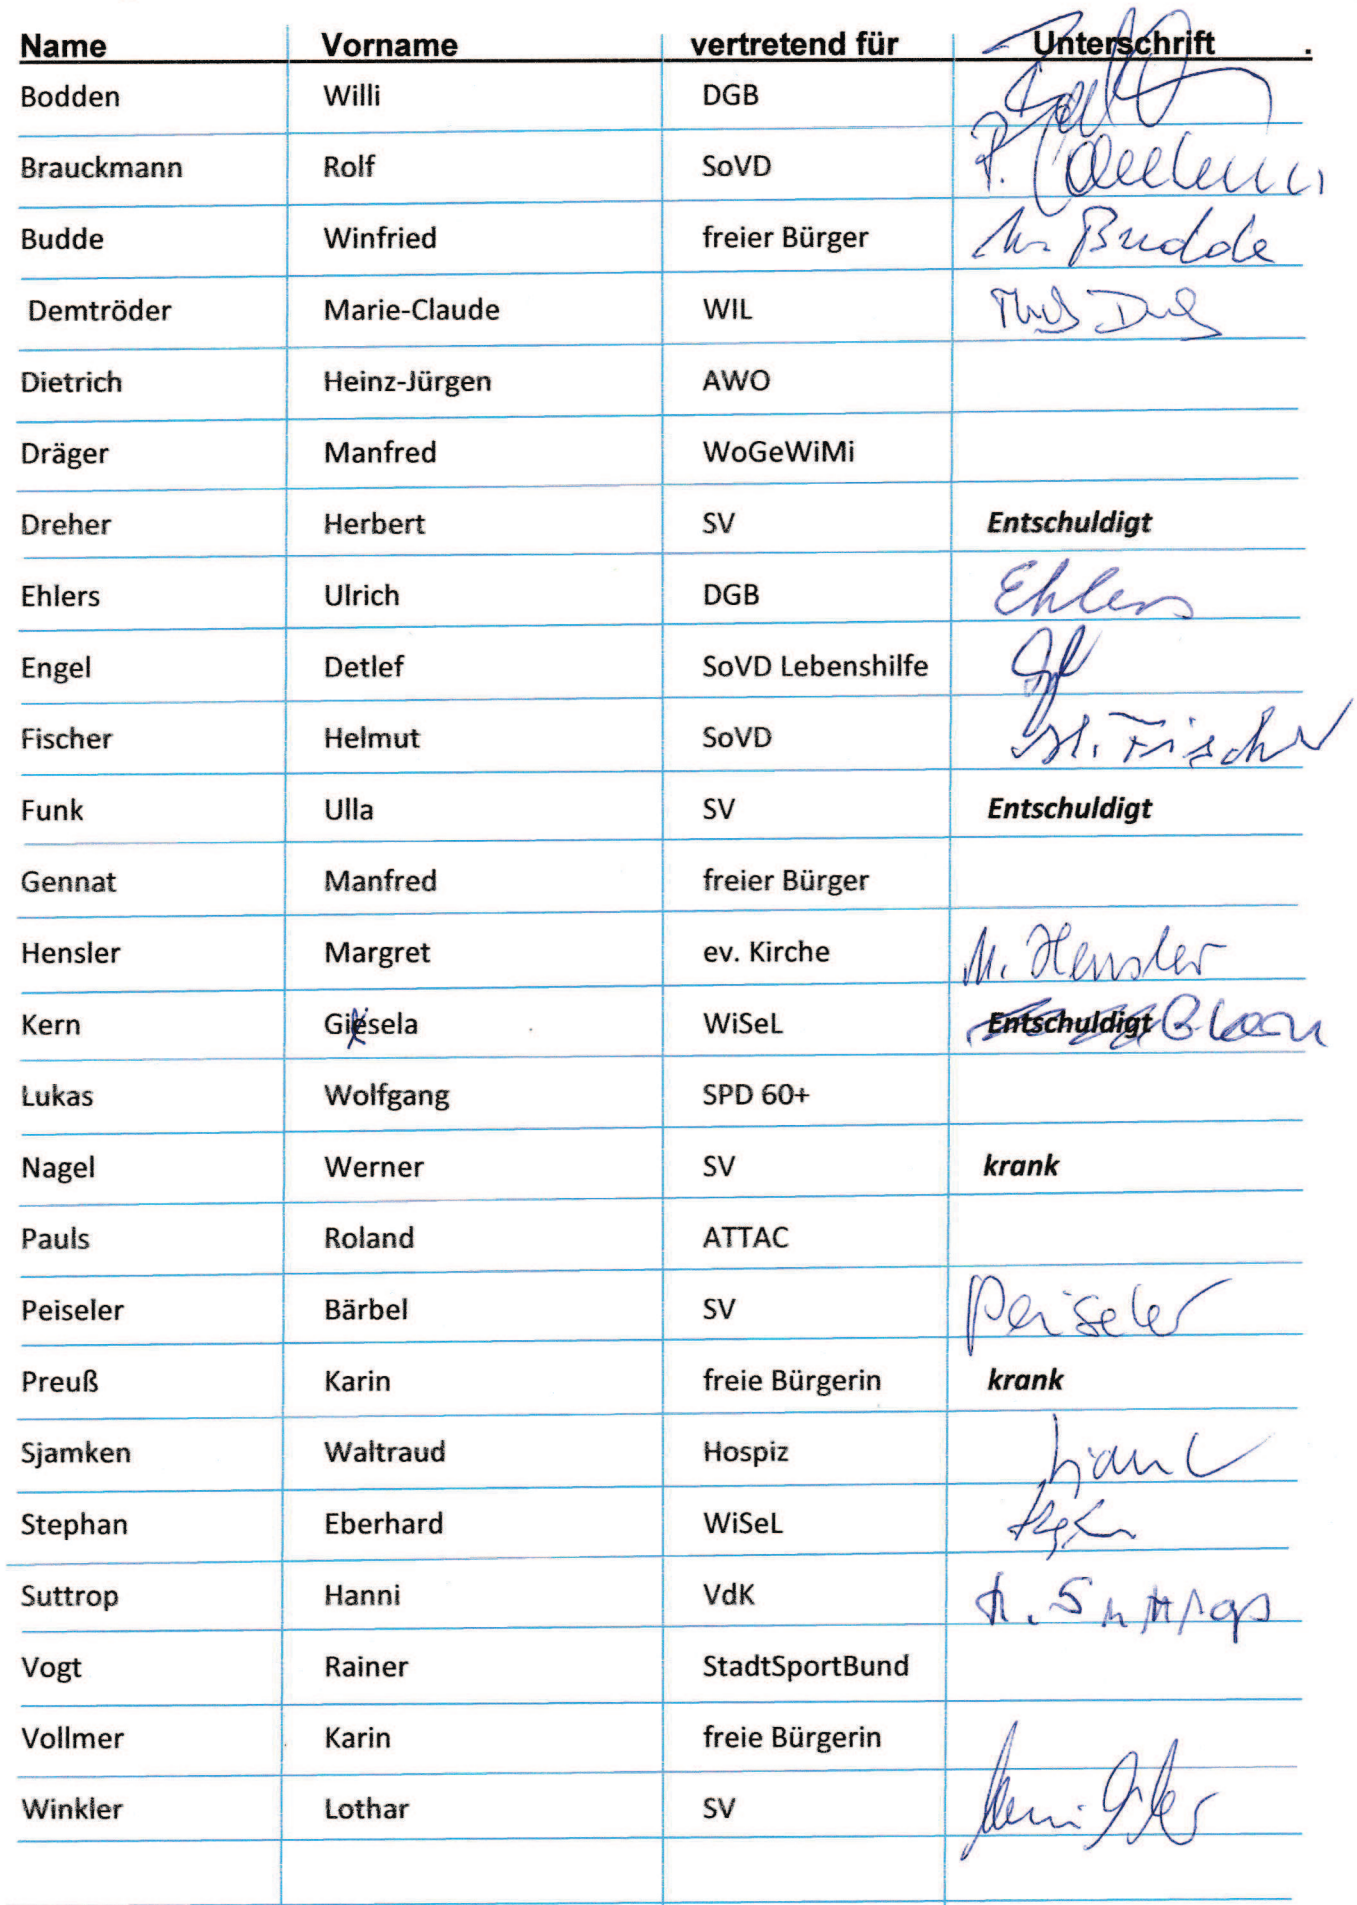 Name Vorname vertretend für Unterschrift .
Bodden Willi DGB
Brauckmann Rolf SoVD
Budde Winfried freier Bürger Budde
Demtröder Marie-Claude WIL
Dietrich Heinz-Jürgen AWO
Dräger Manfred WoGeWiMi
Dreher Herbert SV Entschuldigt
Ehlers Ulrich DGB Ehlers
Engel Detlef SoVD Lebenshilfe
Fischer Helmut SoVD H. Fischer
Funk Ulla SV Entschuldigt
Gennat Manfred freier Bürger
Hensler Margret ev. Kirche M. Hensler
Kern Giesela WiSeL Entschuldigt
Lukas Wolfgang SPD 60+
Nagel Werner SV krank
Pauls Roland ATTAC
Peiseler Bärbel SV Peiseler
Preuß Karin freie Bürgerin krank
Sjamken Waltraud Hospiz
Stephan Eberhard WiSeL
Suttrop Hanni VdK H. Suttrop
Vogt Rainer StadtSportBund
Vollmer Karin freie Bürgerin
Winkler Lothar SV